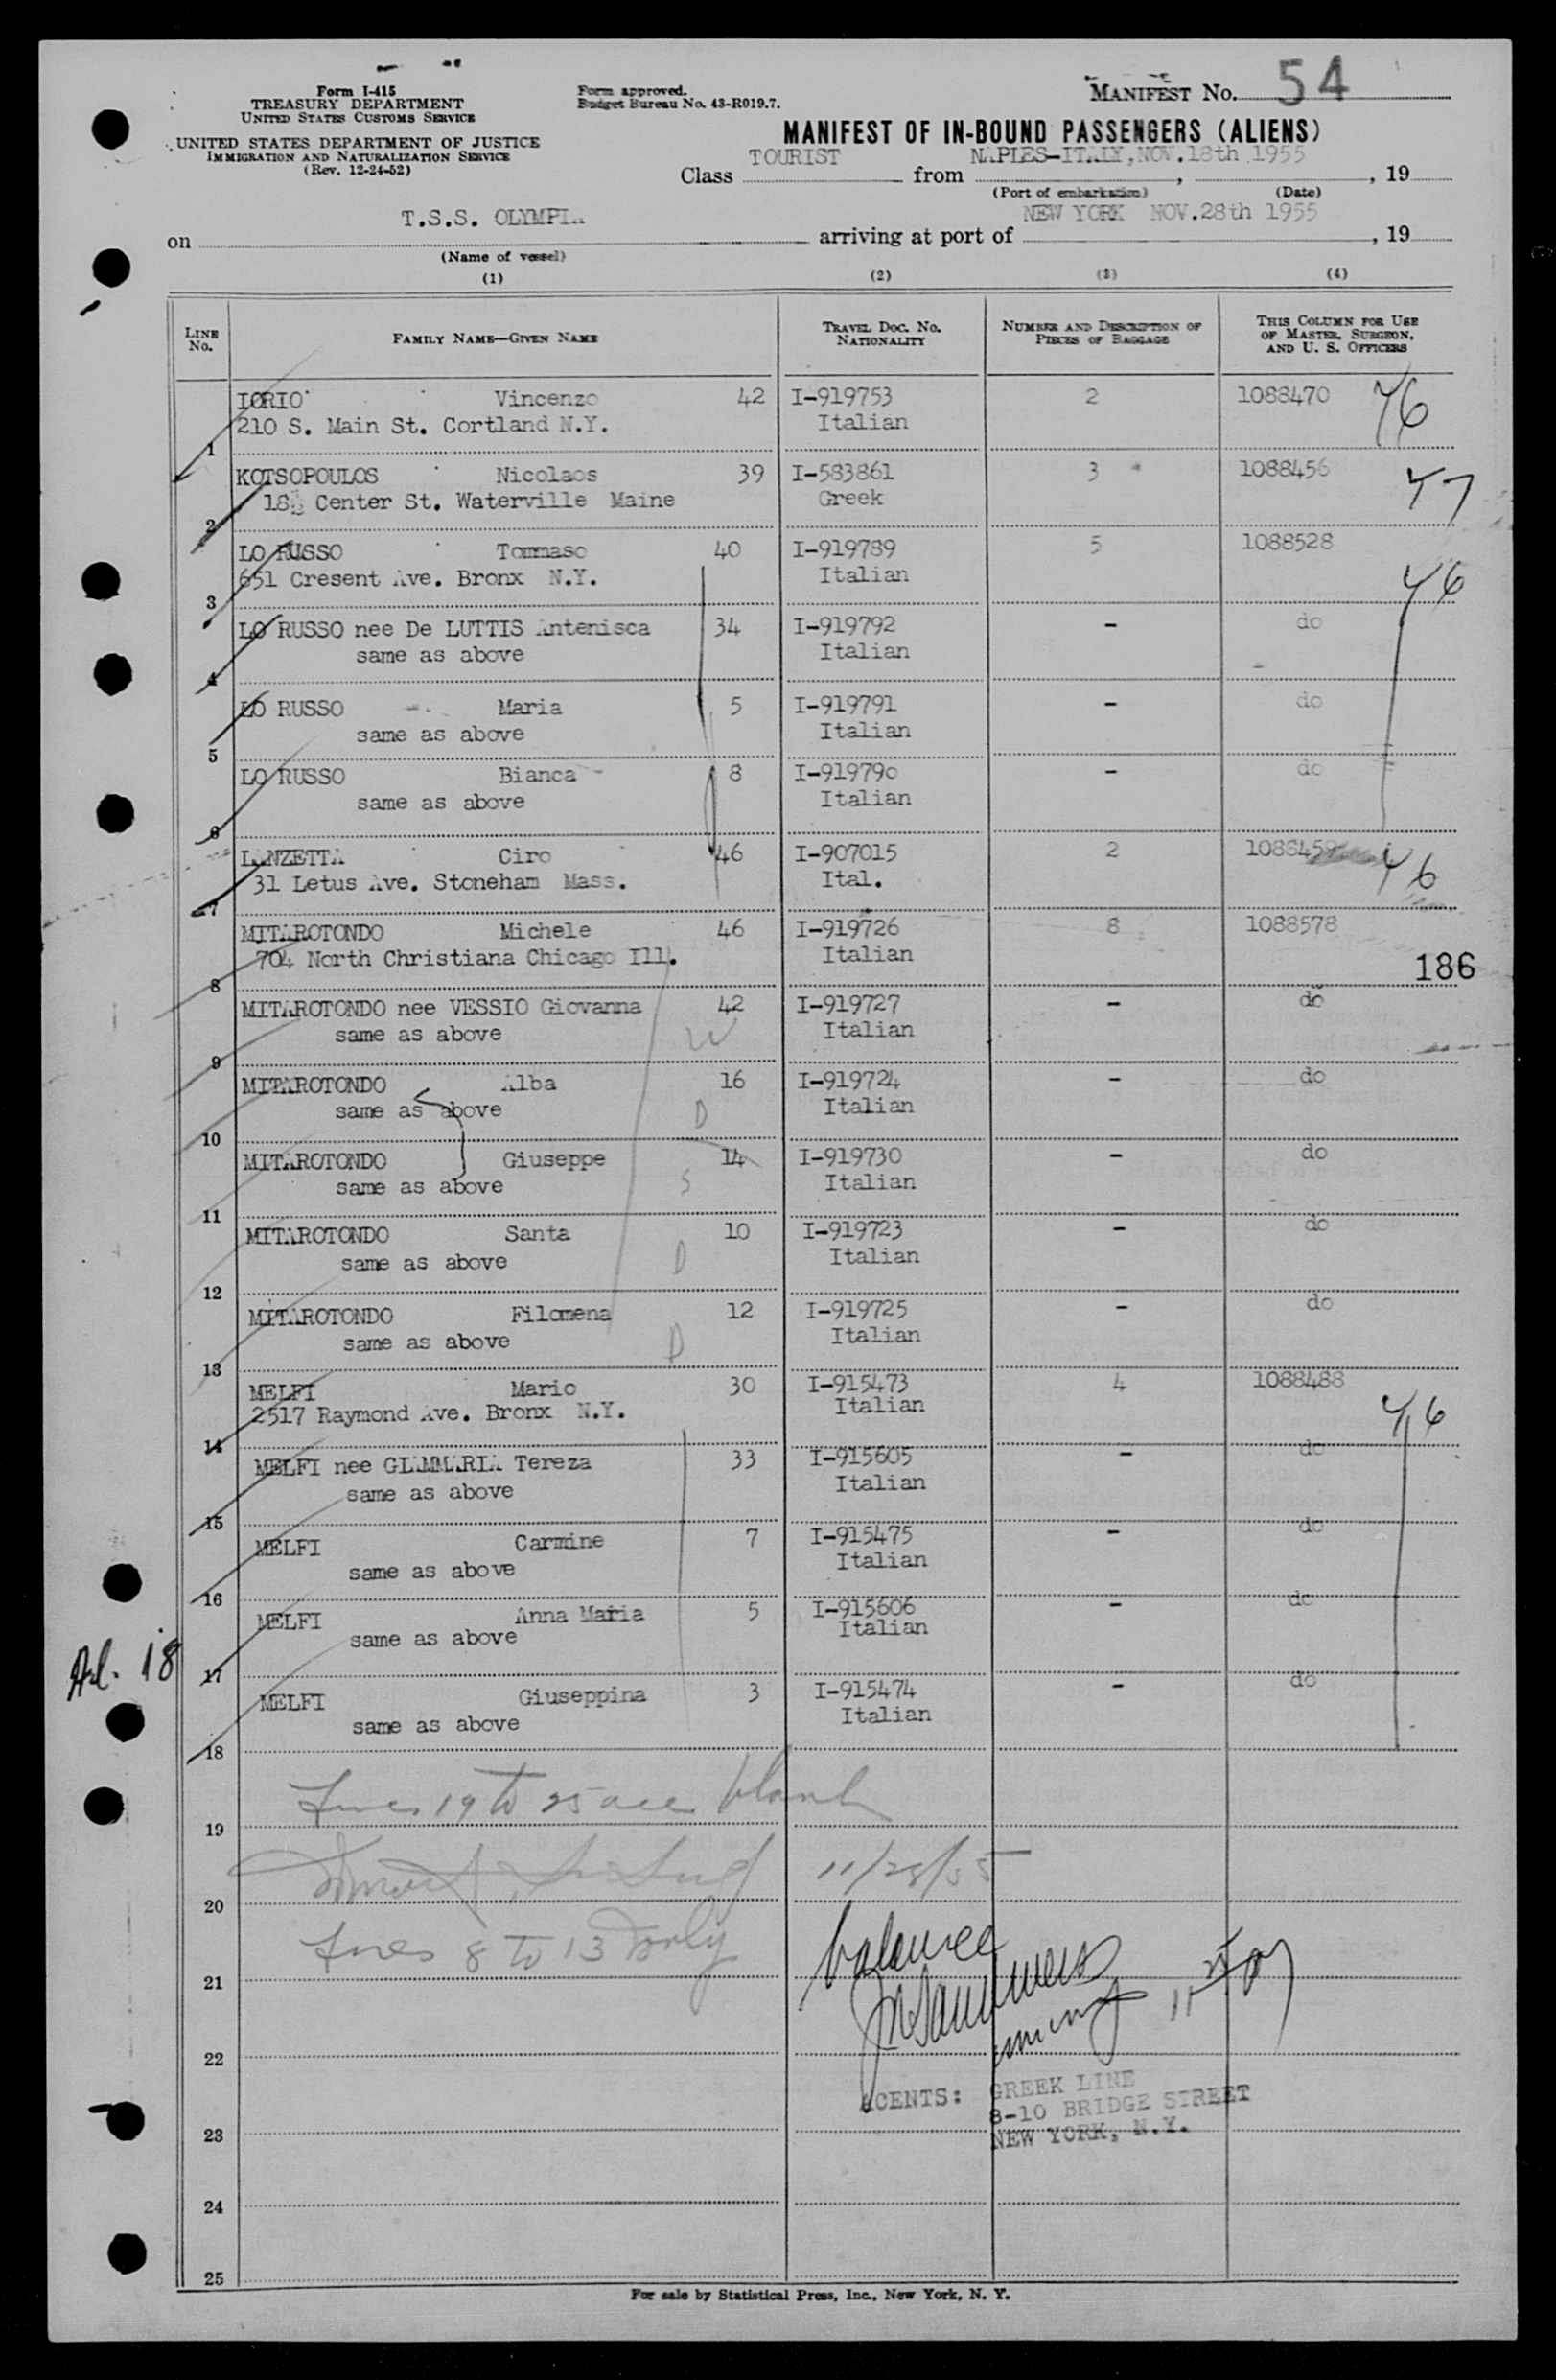 Form I-415
TREASURY DEPARTMENT
UNITED STATES CUSTOMS SERVICE
UNITED STATES DEPARTMENT OF JUSTICE
IMMIGRATION AND NATURALIZATION SERVICE
(Rev. 12-24-52)
Form approved.
Budget Bureau No. 43-R019.7.
MANIFEST No. 54
MANIFEST OF IN-BOUND PASSENGERS (ALIENS)
Class TOURIST from NAPLES-ITALY, NOV.18th 1955, 19
(Port of embarkation) (Date)
on T.S.S. OLYMPIA arriving at port of NEW YORK NOV.28th 1955, 19
(Name of vessel)
(1) (2) (3) (4)
LINE No. FAMILY NAME—GIVEN NAME TRAVEL DOC. No. NATIONALITY NUMBER AND DESCRIPTION OF PIECES OF BAGGAGE THIS COLUMN FOR USE OF MASTER, SURGEON, AND U. S. OFFICERS
IORIO Vincenzo 42 I-919753 2 1088470 46
210 S. Main St. Cortland N.Y. Italian
1
KOTSOPOULOS Nicolaos 39 I-583861 3 1088456 47
Center St. Waterville Maine Greek
2
LO RUSSO Tommaso 40 I-919789 5 1088528
651 Cresent Ave. Bronx N.Y. Italian 46
3
LO RUSSO nee De LUTTIS Antenisca 34 I-919792 - do
same as above Italian
4
LO RUSSO Maria 5 I-919791 - do
same as above Italian
5
LO RUSSO Bianca 8 I-919790 - do
same as above Italian
6
LANZETTA Ciro 46 I-907015 2 46
31 Letus Ave. Stoneham Mass. Ital.
7
MITAROTONDO Michele 46 I-919726 8 1088578
704 North Christiana Chicago Ill. Italian 186
8
MITAROTONDO nee VESSIO Giovanna 42 I-919727 - do
same as above W Italian
9
MITAROTONDO Alba 16 I-919724 - do
same as above D Italian
10
MITAROTONDO Giuseppe 14 I-919730 - do
same as above S Italian
11
MITAROTONDO Santa 10 I-919723 - do
same as above D Italian
12
MITAROTONDO Filomena 12 I-919725 - do
same as above D Italian
13
MELFI Mario 30 I-915473 4 1088488
2517 Raymond Ave. Bronx N.Y. Italian 46
14
MELFI nee GIAMMARIA Tereza 33 I-915605 - do
same as above Italian
15
MELFI Carmine 7 I-915475 - do
same as above Italian
16
MELFI Anna Maria 5 I-915606 - do
same as above Italian
Al. 18
17
MELFI Giuseppina 3 I-915474 - do
same as above Italian
18
Lines 19 to 25 are blank
19
11/28/55
20
Lines 8 to 13 only
balance
21
22
AGENTS: GREEK LINE
8-10 BRIDGE STREET
NEW YORK, N.Y.
23
24
25
For sale by Statistical Press, Inc., New York, N. Y.